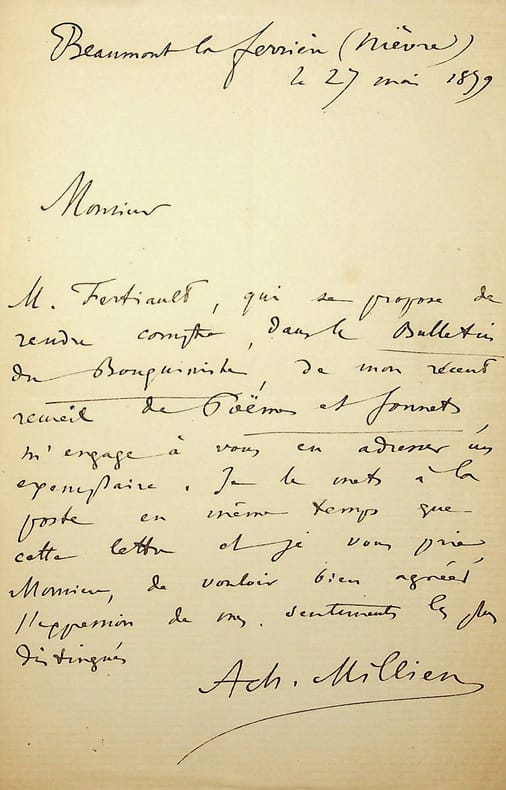 Beaumont la ferrière (Nièvre)
le 27 mai 1879
Monsieur
M. Fertiault, qui se propose de
rendre compte, dans le Bulletin
du Bouquiniste, de mon récent
recueil de Poëmes et Sonnets,
m'engage à vous en adresser un
exemplaire. Je le mets à la
poste en même temps que
cette lettre et je vous prie,
Monsieur, de vouloir bien agréer
l'expression de mes sentiments les plus
distingués
Ach. Millien